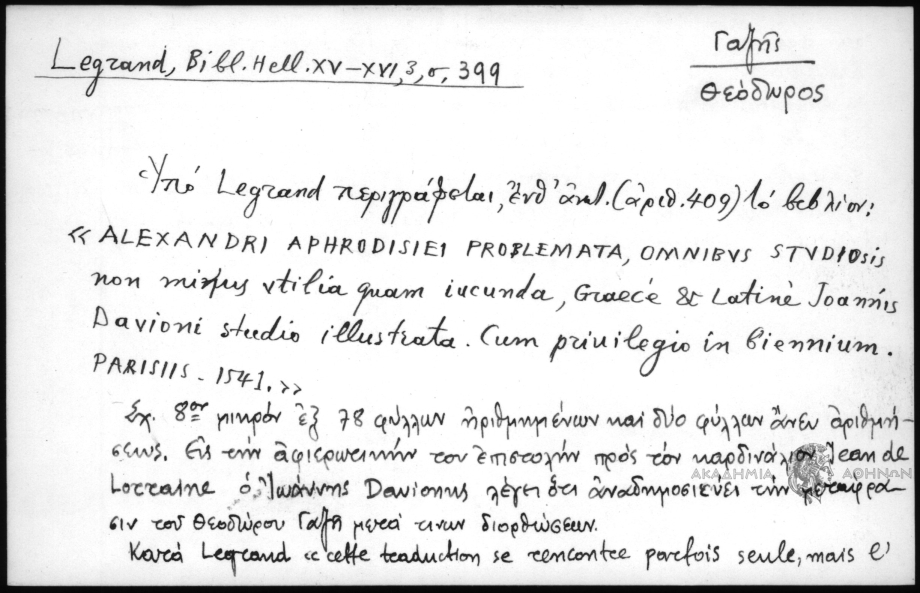 Legrand, Bibl. Hell. XV–XVI, 3, σ, 399
Γαζῆς
Θεόδωρος
Ὑπό Legrand περιγράφεται, ἔνθ' ἀνωτ. (ἀριθ. 409) τό βιβλίον:
« ALEXANDRI APHRODISIEI PROBLEMATA, OMNIBVS STVDIOSIS
non minus vtilia quam iucunda, Graecè & Latinè Joannis
Davioni studio illustrata. Cum priuilegio in biennium.
PARISIIS - 1541. »
Σχ. 8ον μικρόν ἐξ 78 φύλλων ἠριθμημένων καί δύο φύλλων ἄνευ ἀριθμή-
σεως. Εἰς τήν ἀφιερωτικήν του ἐπιστολήν πρός τόν καρδινάλιον Jean de
Lorraine ὁ Ἰωάννης Davionus λέγει ὅτι ἀναδημοσιεύει τήν μετάφρα-
σιν τοῦ Θεοδώρου Γαζῆ μετά τινων διορθώσεων.
Κατά Legrand « cette traduction se rencontre parfois seule, mais l'
ΑΚΑΔΗΜΙΑ ΑΘΗΝΩΝ